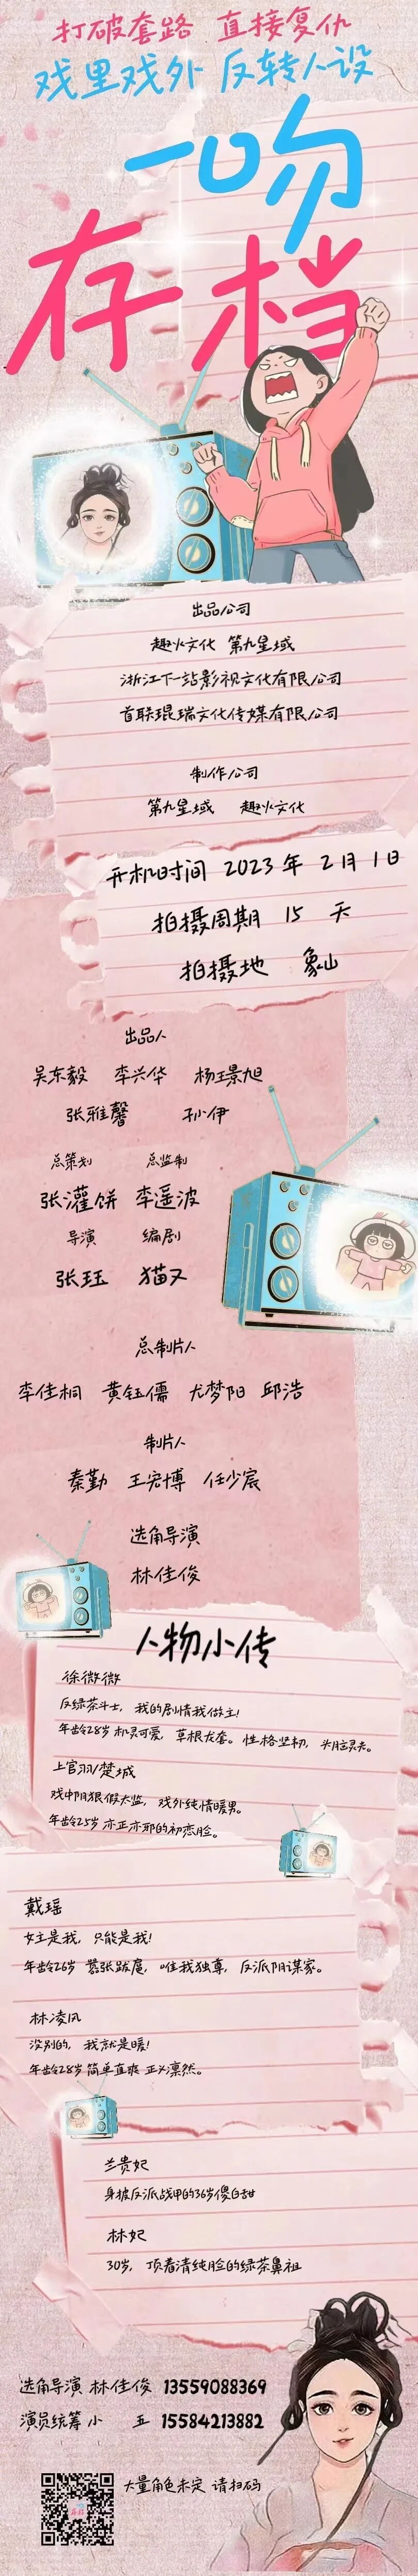 打破套路 直接复仇
戏里戏外 反转人设
一吻
存档
出品公司
趣火文化 第九星域
浙江下一站影视文化有限公司
首联琨瑞文化传媒有限公司
制作公司
第九星域 趣火文化
开机时间 2023年 2月1日
拍摄周期 15 天
拍摄地 象山
出品人
吴东毅 李兴华 杨璟旭
张雅馨 孙伊
总策划 总监制
张灌饼 李遥波
导演 编剧
张珏 猫又
总制片人
李佳桐 黄钰儒 尤梦阳 邱浩
制片人
秦勤 王宏博 任少宸
选角导演
林佳俊
人物小传
徐微微
反绿茶斗士，我的剧情我做主！
年龄28岁 机灵可爱，草根龙套。性格坚韧，头脑灵夫。
上官羽/楚城
戏中阴狠假太监，戏外纯情暖男。
年龄25岁 亦正亦邪的初恋脸。
戴瑶
女主是我，只能是我！
年龄26岁 嚣张跋扈，唯我独尊，反派阴谋家。
林凌风
没别的，我就是暖！
年龄28岁 简单直爽 正义凛然。
兰贵妃
身披反派战甲的36岁傻白甜
林妃
30岁，顶着清纯脸的绿茶鼻祖
选角导演 林佳俊 13559088369
演员统筹 小 五 15584213882
大量角色未定 请扫码